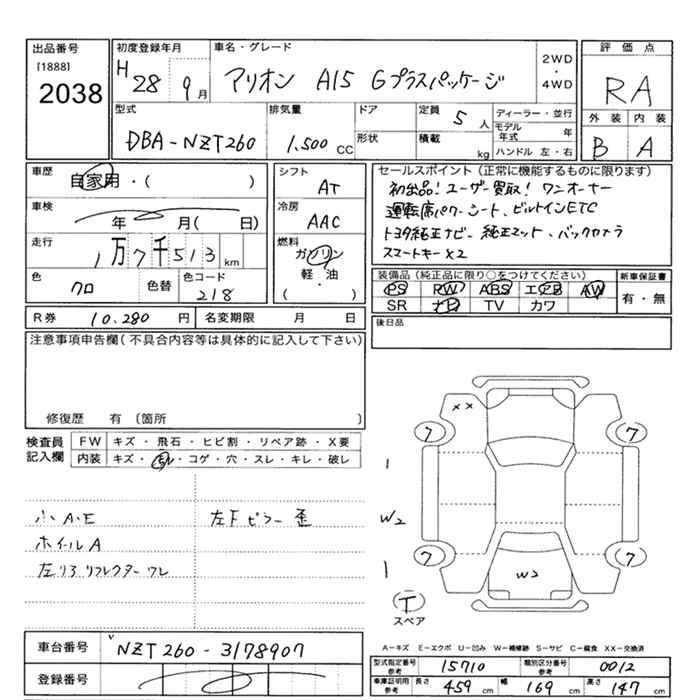 出品番号
[1888]
2038
初度登録年月
H 28 9月
車名・グレード
アリオン A15 Gプラスパッケージ
2WD
・
4WD
評価点
RA
外装 内装
B A
型式
DBA-NZT260
排気量
1.500 CC
ドア
形状
定員 5人
積載 kg
ディーラー・並行
モデル年式 年
ハンドル 左・右
車歴
自家用・( )
車検
年 月( 日)
走行
1万7千513km
色
クロ
色替
色コード
218
シフト
AT
冷房
AAC
燃料
ガソリン
軽・油
( )
セールスポイント(正常に機能するものに限ります)
初出品!ユーザー買取!ワンオーナー
運転席パワーシート、ビルトインETC
トヨタ純正ナビ、純正マット、バックカメラ
スマートキーx2
装備品(純正品に限り○をつけてください)
PS PW ABS エアB AW
SR ナビ TV カワ
新車保証書
有・無
R券 10.280円
名変期限 月 日
後日品
注意事項申告欄(不具合内容等は具体的に記入して下さい)
修復歴 有 〔箇所 〕
検査員記入欄
FW キズ・飛石・ヒビ割・リペア跡・X要
内装 キズ・ヨゴレ・コゲ・穴・スレ・キレ・破レ
小A.E
ホイールA
左リヤリフレクターワレ
左Fピラー歪
xx
7 7
1
W2
7 7
1
W2
T
スペア
車台番号 NZT260-3178907
登録番号
A-キズ E-エクボ U-凹み W-補修跡 S-サビ C-腐食 XX-交換済
型式指定番号 参考 15710
類別区分番号 参考 0012
車庫証明用 参考 長さ 459cm 幅 169cm 高さ 147cm